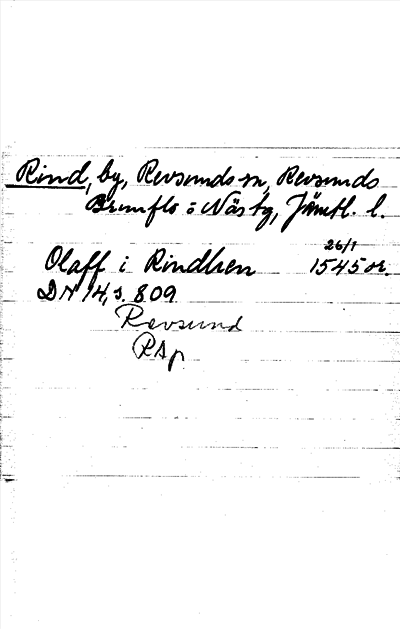 Rind, by, Revsunds sn, Revsunds
Brunflo o Näs tg, Jämtl. l.
Olaff i Rindhen 26/1 1545 or.
DN 14, s. 809
Revsund
RAp